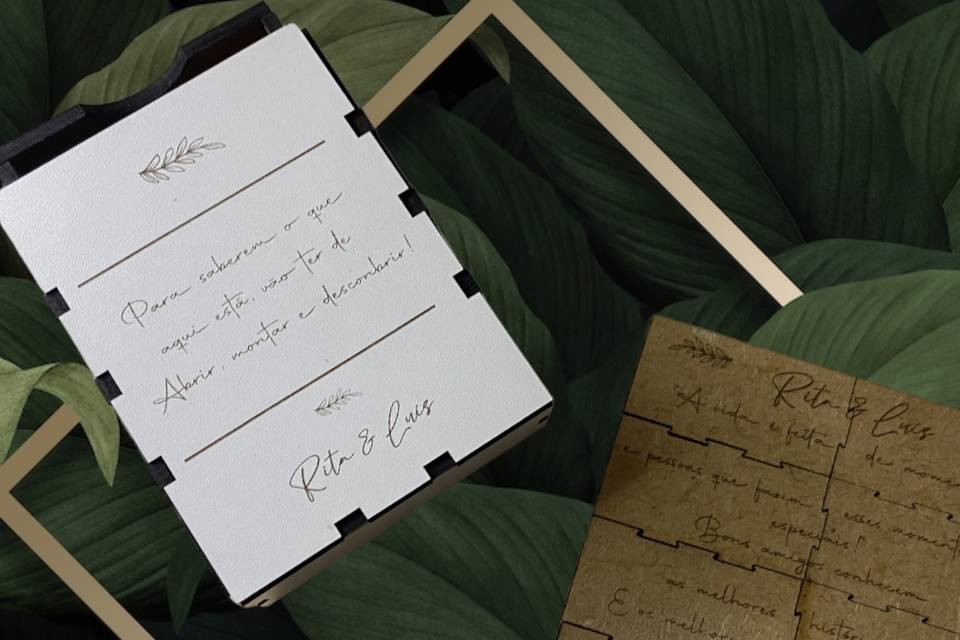 Para saberem o que
aqui está, vão ter de
Abrir, montar e desconbrir!
Rita & Luis
Rita & Luis
"A vida é feita de
e pessoas que fazem esses
especiais!
Bons amigos conhecem
as melhores
E os